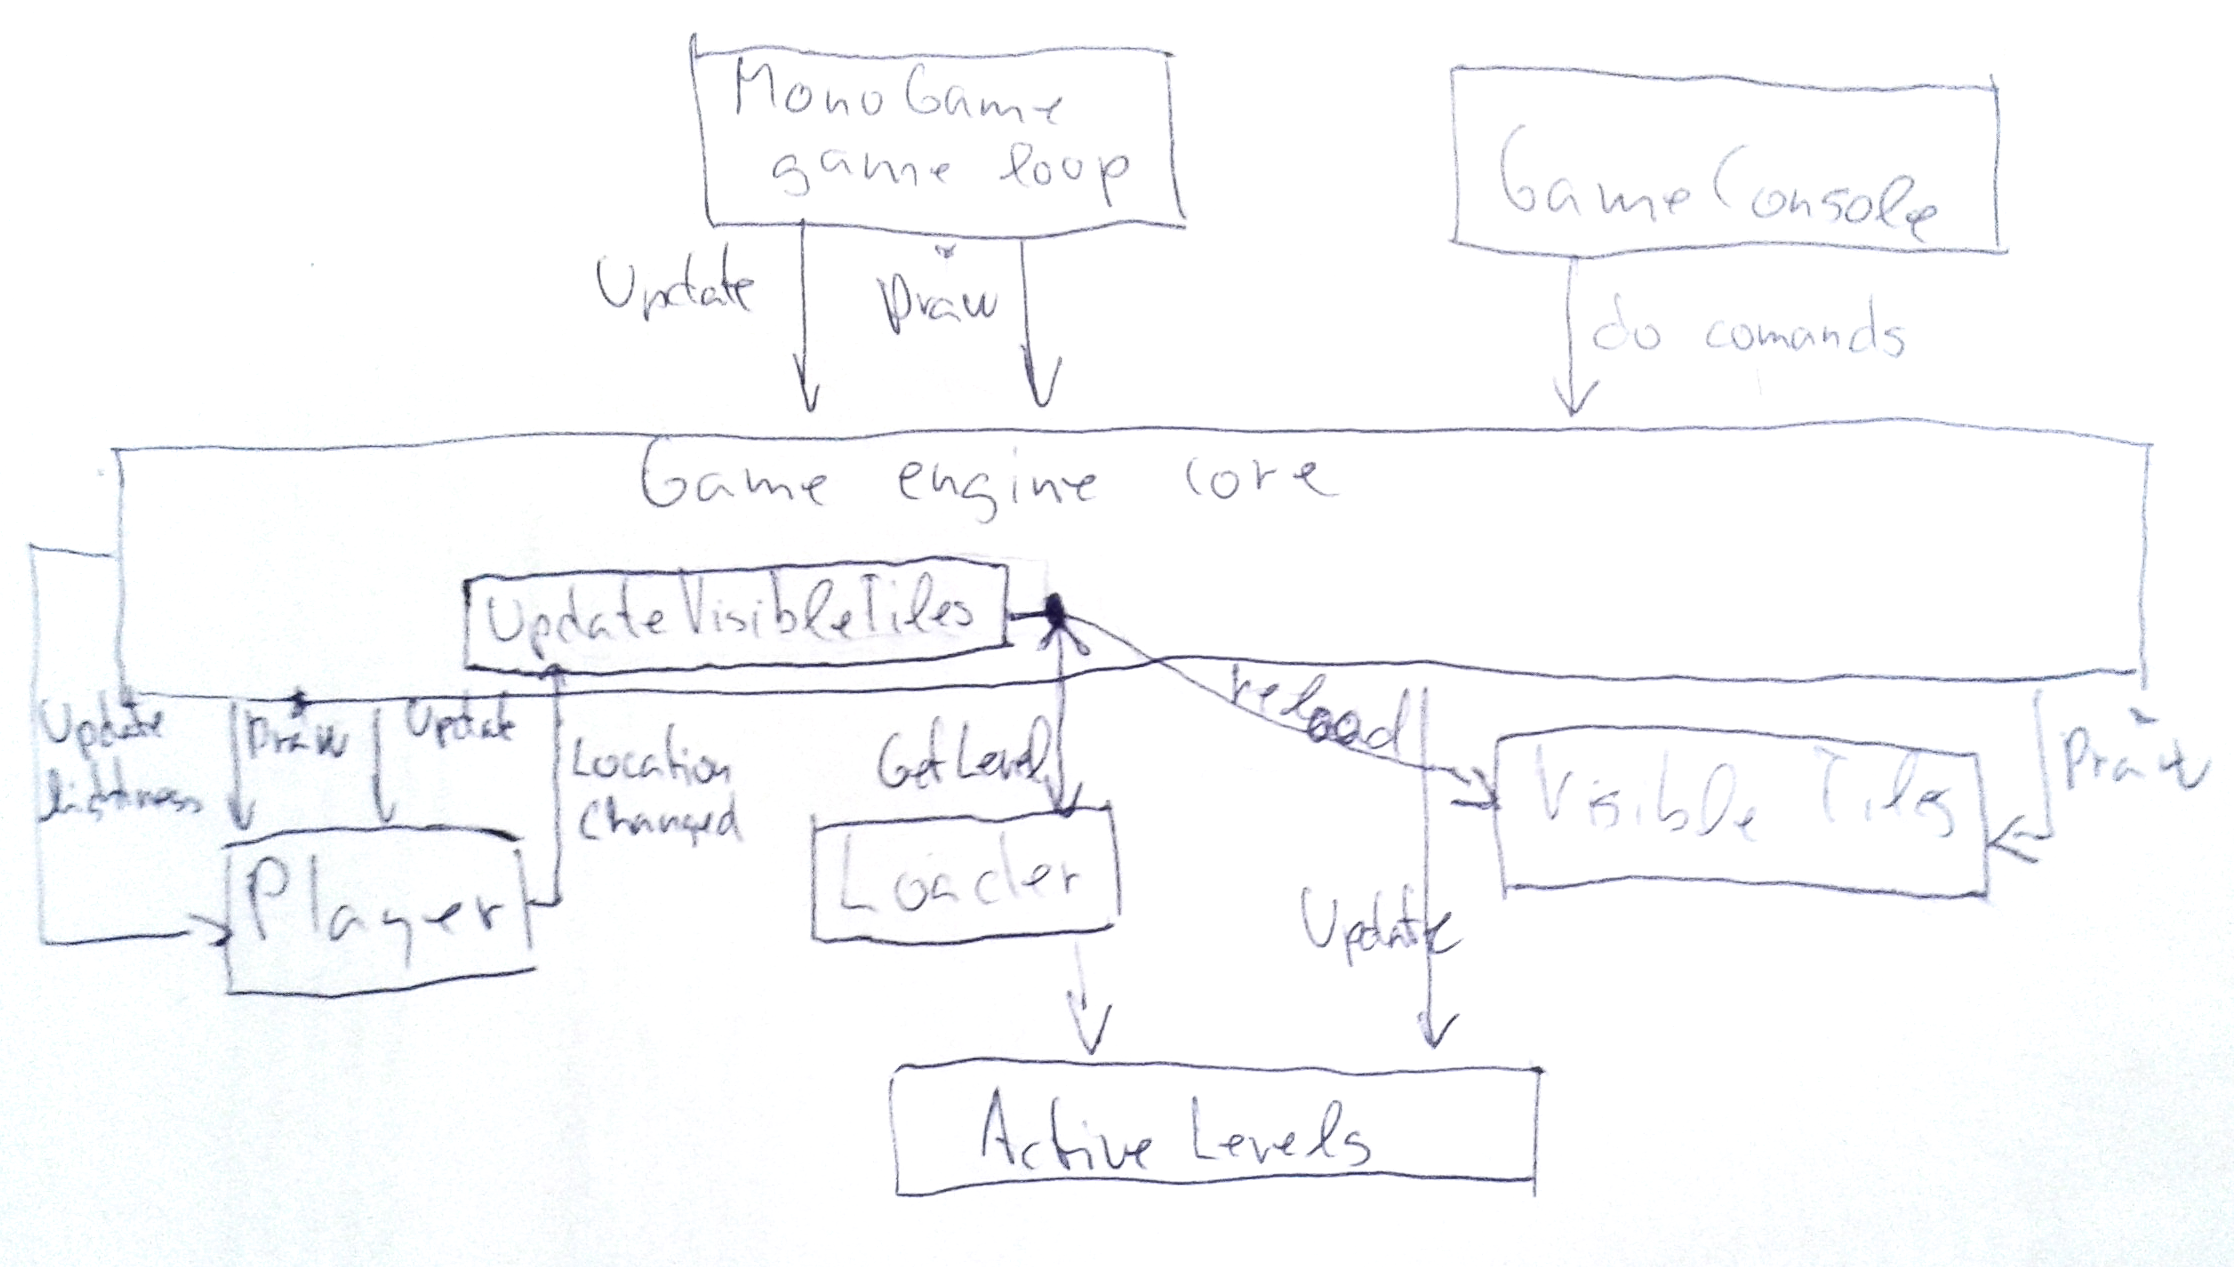 MonoGame
game loop
GameConsole
Update
Draw
do comands
Game engine core
UpdateVisibleTiles
Update
lightness
Draw
Update
Location
Changed
GetLevel
reload
Visible Tiles
Draw
Player
Loader
Update
Active Levels